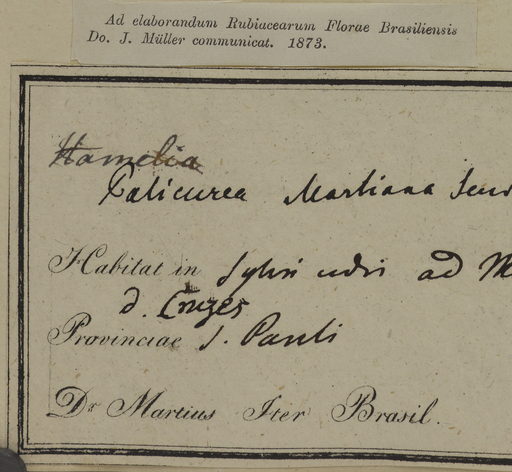 Ad elaborandum Rubiacearum Florae Brasiliensis
Do. J. Müller communicat. 1873.
Hamelia
Palicurea Martiana
Habitat in Sylvis udis ad M
d. Cruzes
Provinciae S. Pauli
Dr Martius Iter Brasil.